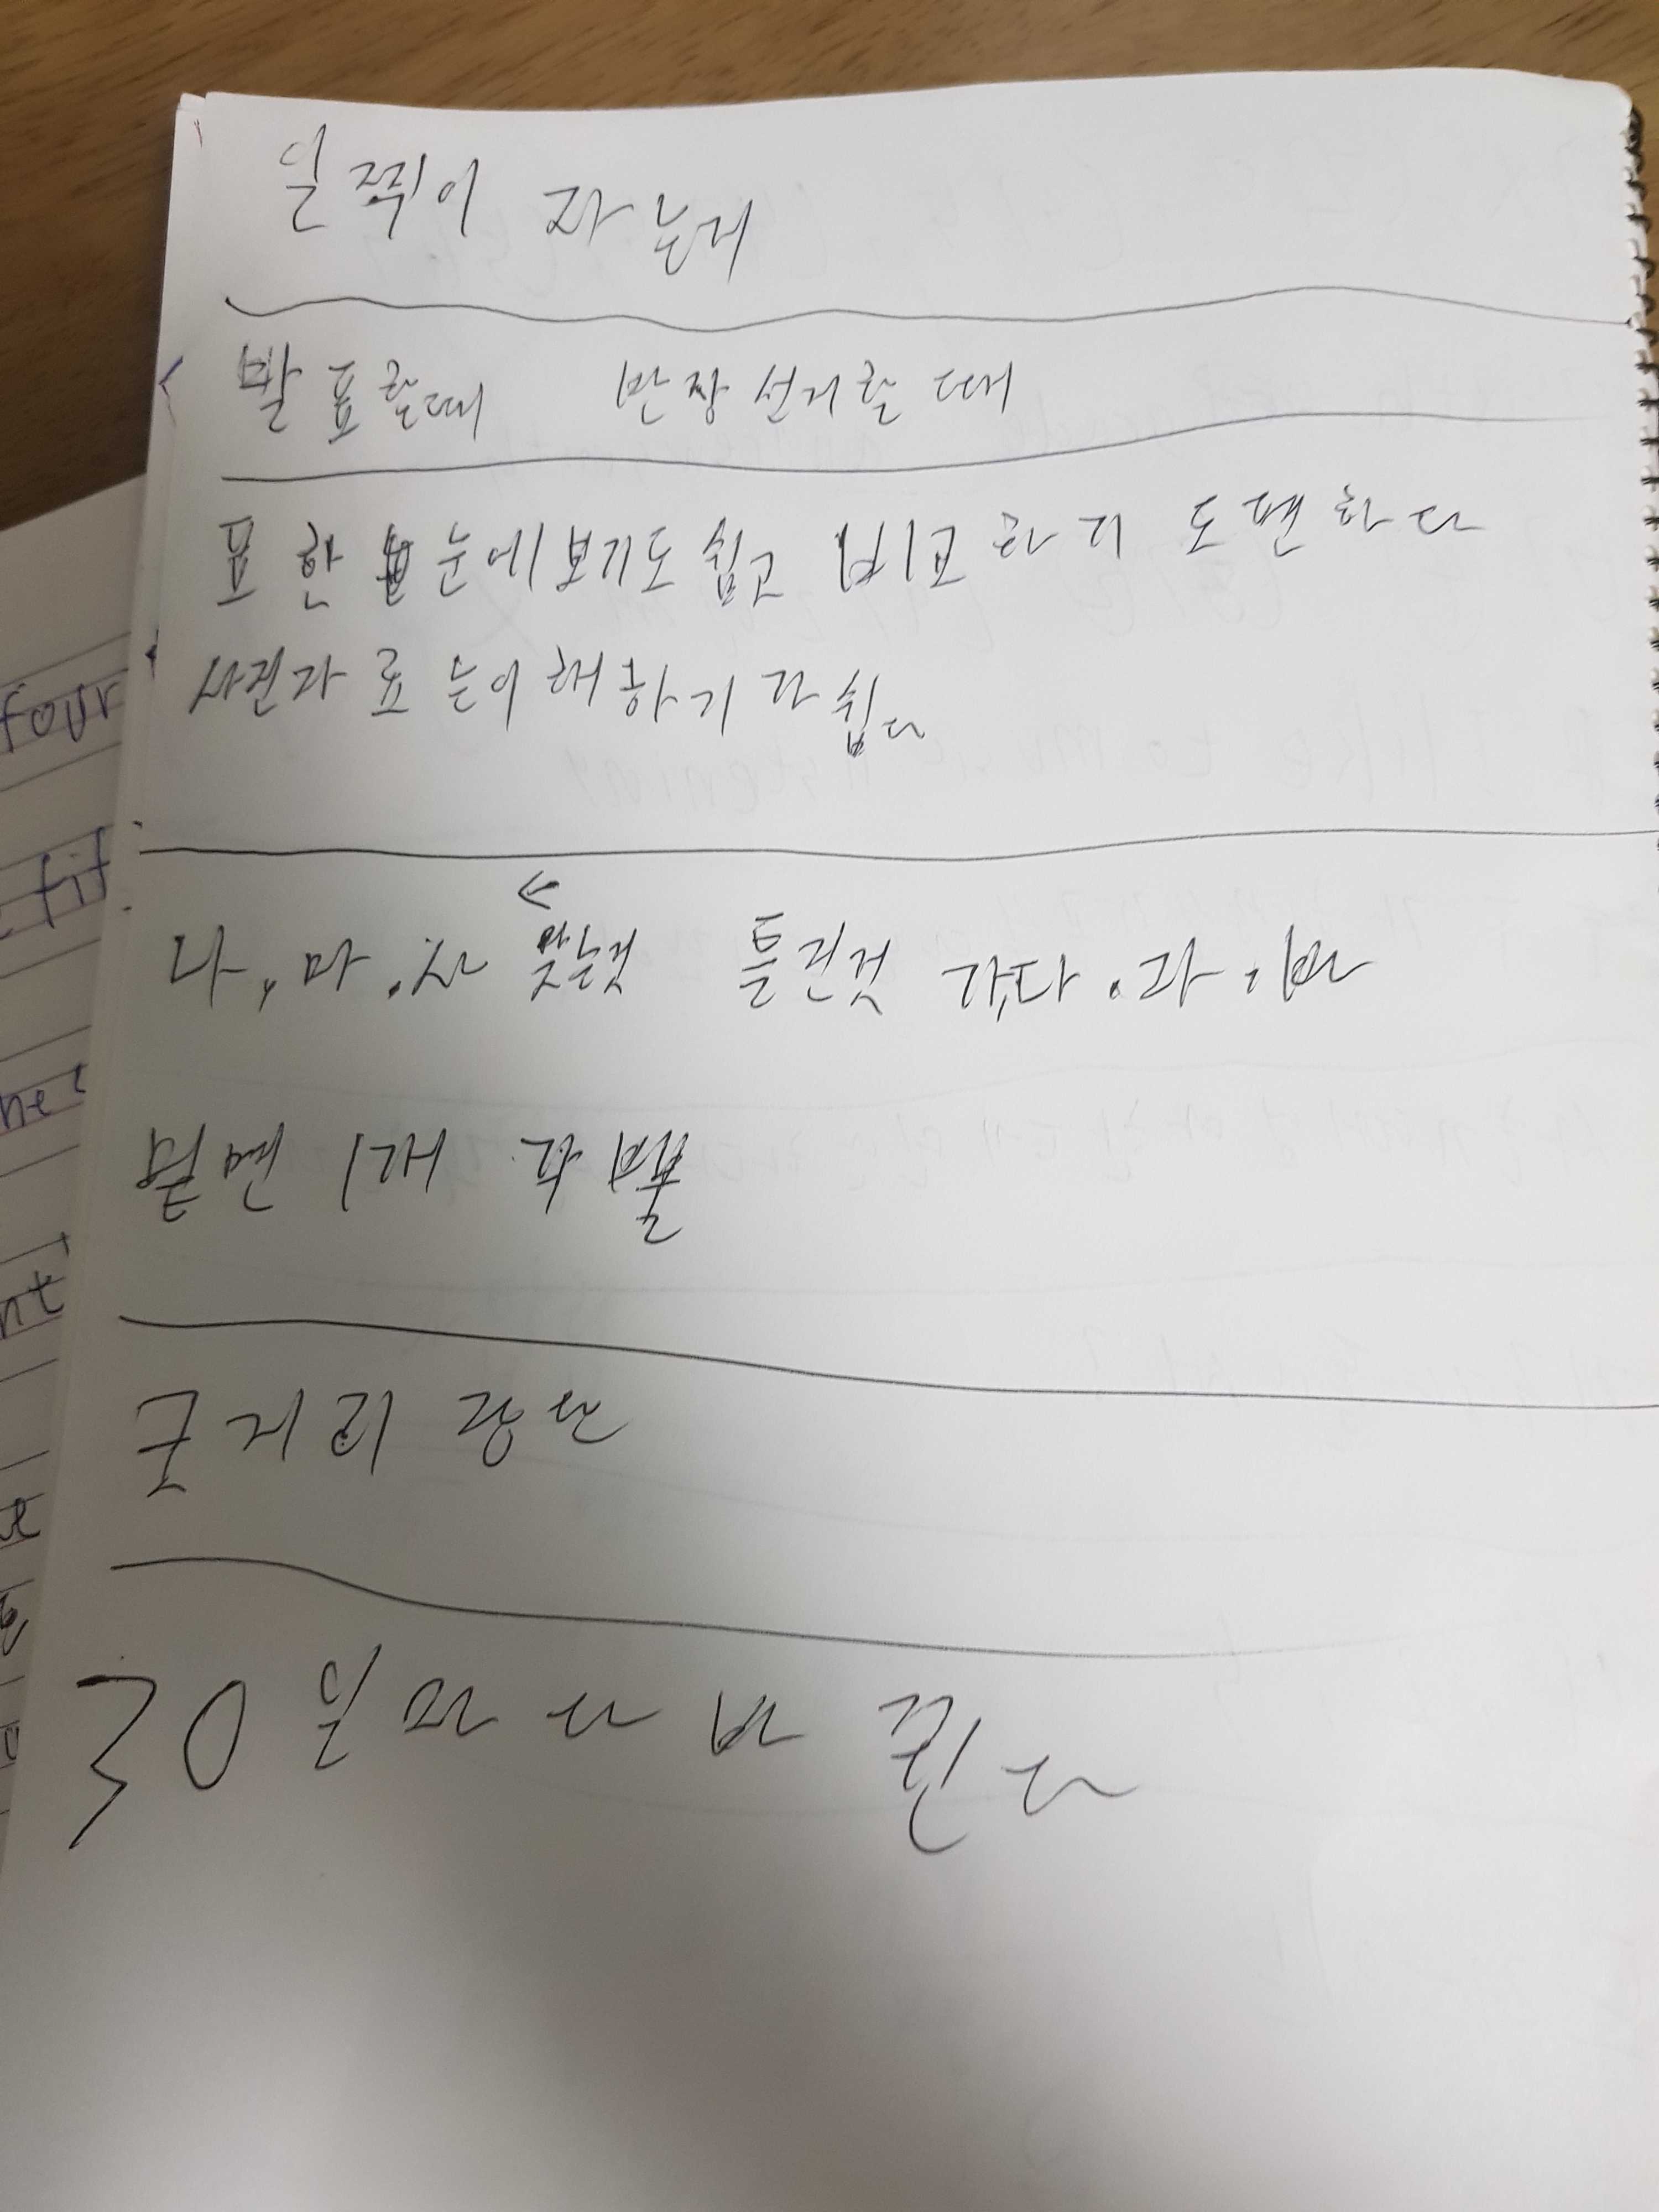 일찍이 자는거
발표할때 반장선거할 때
표 한 눈에보기도쉽고 비교하기 도편하다
사진자료는이해하기가쉽다
나, 마.사 맞는것 틀린것 가,다.라.바
밑면 1개 각뿔
굿거리 장단
30일마다 바뀐다
four
fif
nt